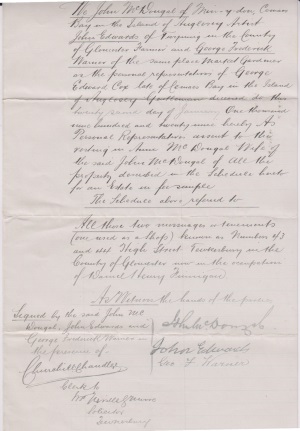 We John McDougal of Bunny don, Cemaes
Bay in the Island of Anglesey Artist
John Edwards of Turpiny in the County
of Gloucester Farmer and George Frederick
Warner of the same place Market Gardener
as the personal representatives of George
Edward Cox late of Cemaes Bay in the Island
of Anglesey Gentleman deceased do this
twenty second day of January One thousand
nine hundred and twenty nine hereby As
Personal Representatives assent to the
vesting in Annie McDougal Wife of
the said John McDougal of All the
property described in the Schedule hereto
for an Estate in fee simple
The Schedule above referred to
All those two messuages or tenements
(one used as a Shop) known as Numbers
and High Street Tewkesbury in the
County of Gloucester now in the occupation
of Daniel Henry
As Witness the hands of the parties
Signed by the said John Mc
Dougal, John Edwards and
George Frederick Warner in
the presence of
John McDougal
John Edwards
Geo F Warner
Churchill Chandler
Clerk to
Solicitor
Tewkesbury